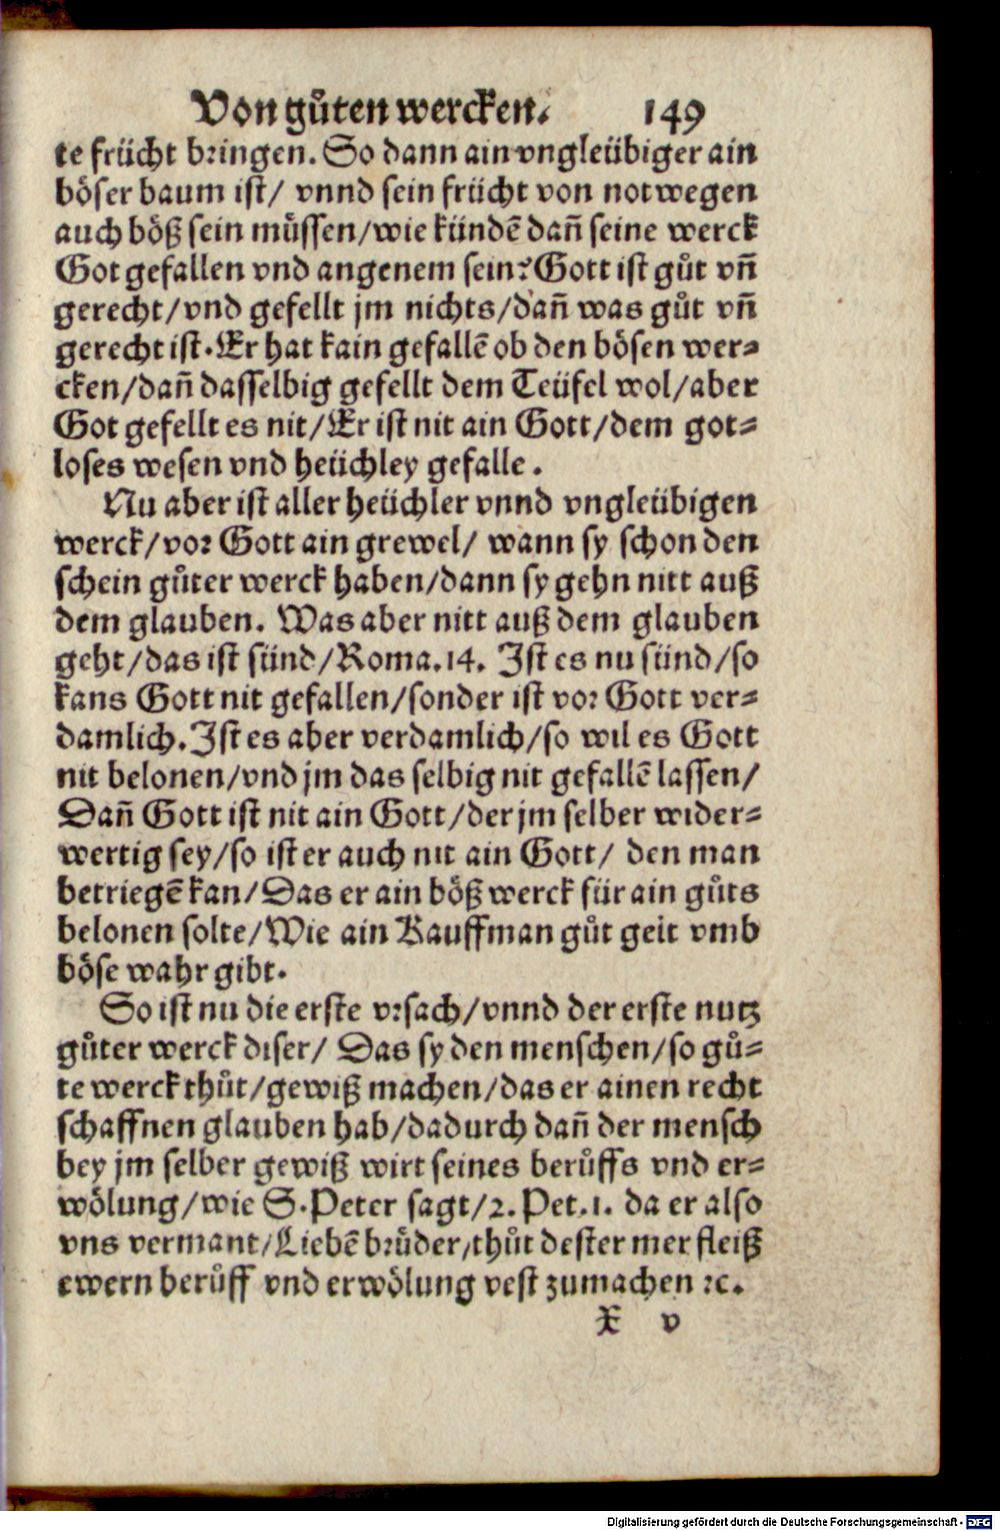 Von gůten wercken. 149
te frücht bringen. So dann ain vngleübiger ain
böser baum ist/ vnnd sein frücht von not wegen
auch böß sein müssen/wie kündē dañ seine werck
Got gefallen vnd angenem sein? Gott ist gůt vñ
gerecht/vnd gefellt jm nichts/dañ was gůt vñ
gerecht ist. Er hat kain gefallē ob den bösen wer⸗
cken/dañ dasselbig gefellt dem Teüfel wol/aber
Got gefellt es nit/Er ist nit ain Gott/dem got⸗
loses wesen vnd heüchley gefalle.
Nu aber ist aller heüchler vnnd vngleübigen
werck/vor Gott ain grewel/ wann sy schon den
schein gůter werck haben/dann sy gehn nitt auß
dem glauben. Was aber nitt auß dem glauben
geht/das ist sünd/Roma.14. Ist es nu sünd/so
kans Gott nit gefallen/sonder ist vor Gott ver⸗
damlich. Ist es aber verdamlich/so wil es Gott
nit belonen/vnd jm das selbig nit gefallē lassen/
Dañ Gott ist nit ain Gott/der jm selber wider⸗
wertig sey/so ist er auch nit ain Gott/ den man
betriegē kan/Das er ain böß werck für ain gůts
belonen solte/Wie ain Kauffman gůt gelt vmb
böse wahr gibt.
So ist nu die erste vrsach/vnnd der erste nutz
gůter werck diser/ Das sy den menschen/so gů⸗
te werck thůt/gewiß machen/das er ainen recht
schaffnen glauben hab/dadurch dañ der mensch
bey jm selber gewiß wirt seines berůffs vnd er⸗
wölung/wie S. Peter sagt/2. Pet.1. da er also
vns vermant/Liebē brůder/thůt dester mer fleiß
ewern berůff vnd erwölung vest zumachen ꝛc.
X v
Digitalisierung gefördert durch die Deutsche Forschungsgemeinschaft - DFG